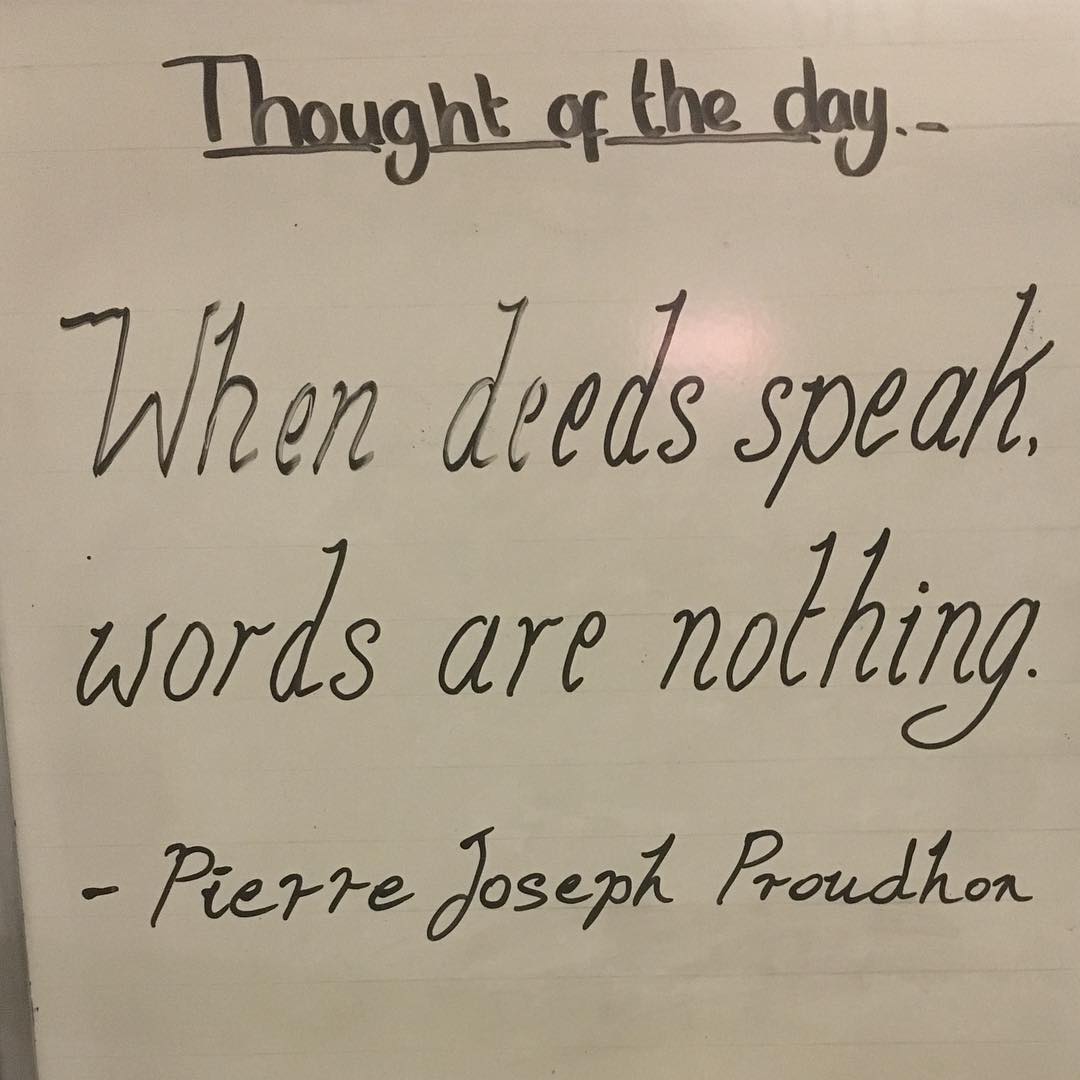 Thought of the day.-
When deeds speak,
words are nothing.
- Pierre Joseph Proudhon